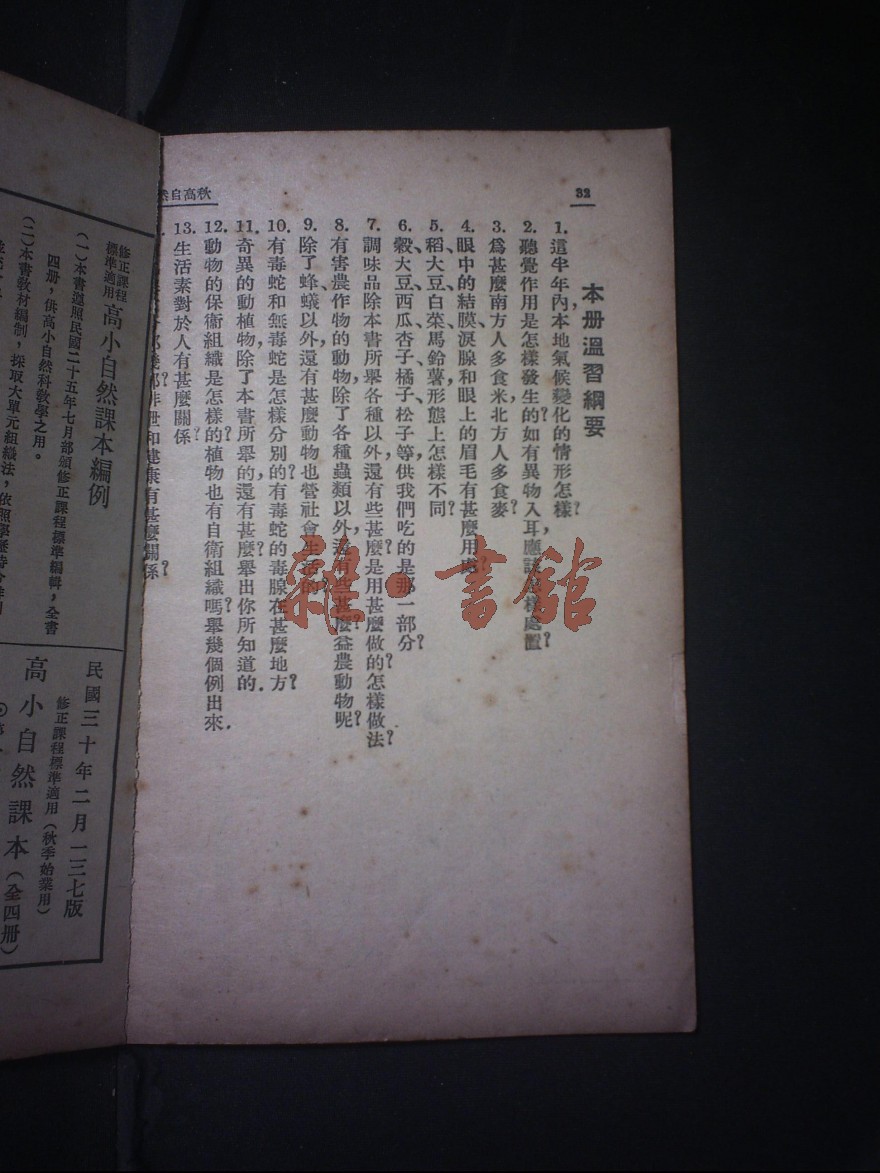 32
秋高自然
本册溫習綱要
1. 這半年內,本地氣候變化的情形怎樣?
2. 聽覺作用是怎樣發生的?如有異物入耳,應該怎樣處置?
3. 爲甚麼南方人多食米,北方人多食麥?
4. 眼中的結膜、淚腺和眼上的眉毛,有甚麼用處?
5. 稻、大豆、白菜、馬鈴薯,形態上怎樣不同?
6. 穀、大豆、西瓜、杏子、橘子、松子等,供我們吃的是那一部分?
7. 調味品除本書所舉各種以外,還有些甚麼?是用甚麼做的?怎樣做法?
8. 有害農作物的動物,除了各種蟲類以外,還有些甚麼?益農動物呢?
9. 除了蜂、蟻以外,還有甚麼動物也營社會生活的?
10. 有毒蛇和無毒蛇是怎樣分別的?有毒蛇的毒腺在甚麼地方?
11. 奇異的動植物,除了本書所舉的,還有甚麼?舉出你所知道的.
12. 動物的保衛組織是怎樣的?植物也有自衛組織嗎?舉幾個例出來.
13. 生活素對於人有甚麼關係?
和健康有甚麼關係?
修正課程標準適用 高小自然課本編例
(一)本書遵照民國二十五年七月部頒修正課程標準編輯,全書
四册,供高小自然科教學之用。
(二)本書教材編制,採取大單元組織法,依照學
民國三十年二月一三七版
修正課程標準適用(秋季始業用)
高小自然課本(全四册)
雜·書館